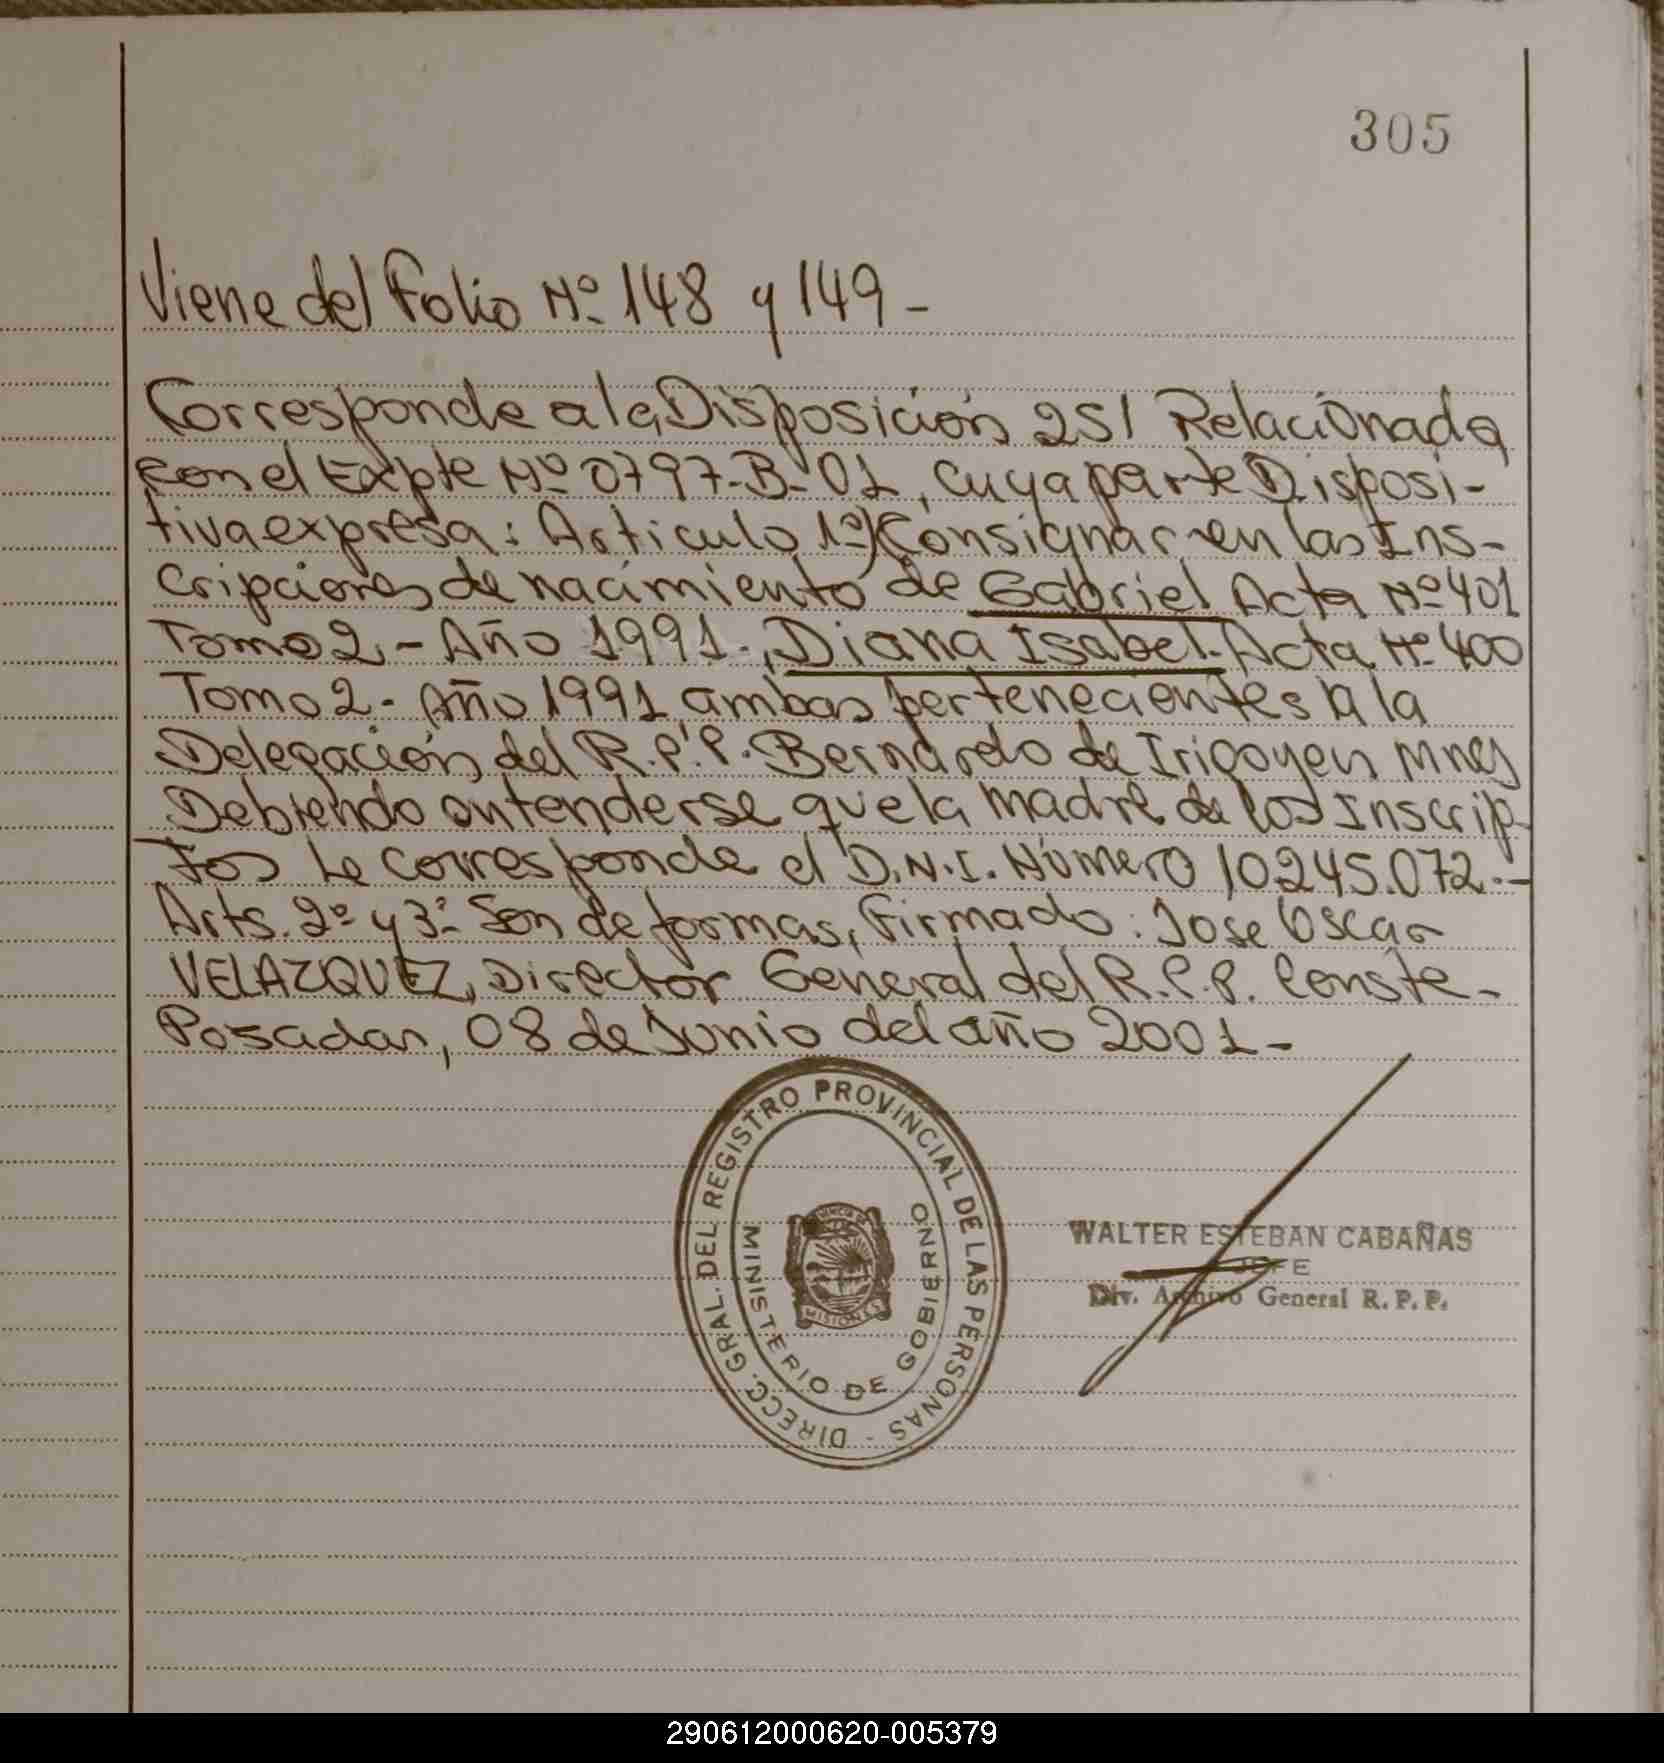 305
Viene del Folio Nº 148 y 149 -
Corresponde a la Disposición 251 Relacionada
con el Expte Nº 0797-B-01, cuya parte Disposi-
tiva expresa: Articulo 1º) Consignar en las Ins-
cripciones de nacimiento de Gabriel Acta Nº 401
Tomo 2 - Año 1991., Diana Isabel. Acta Nº 400
Tomo 2 - Año 1991, ambas pertenecientes a la
Delegación del R.P.P. Bernardo de Irigoyen Mnes
Debiendo entenderse que la madre de los Inscrip-
tos Le corresponde el D.N.I. Número 10.245.072.-
Arts. 2º y 3º Son de formas, Firmado: Jose Oscar
VELAZQUEZ, Director General del R.P.P. Conste-
Posadas, 08 de Junio del año 2001-
DIRECC. GRAL. DEL REGISTRO PROVINCIAL DE LAS PERSONAS -
MINISTERIO DE GOBIERNO
MISIONES
WALTER ESTEBAN CABAÑAS
JEFE
Div. Archivo General R. P. P.
290612000620-005379